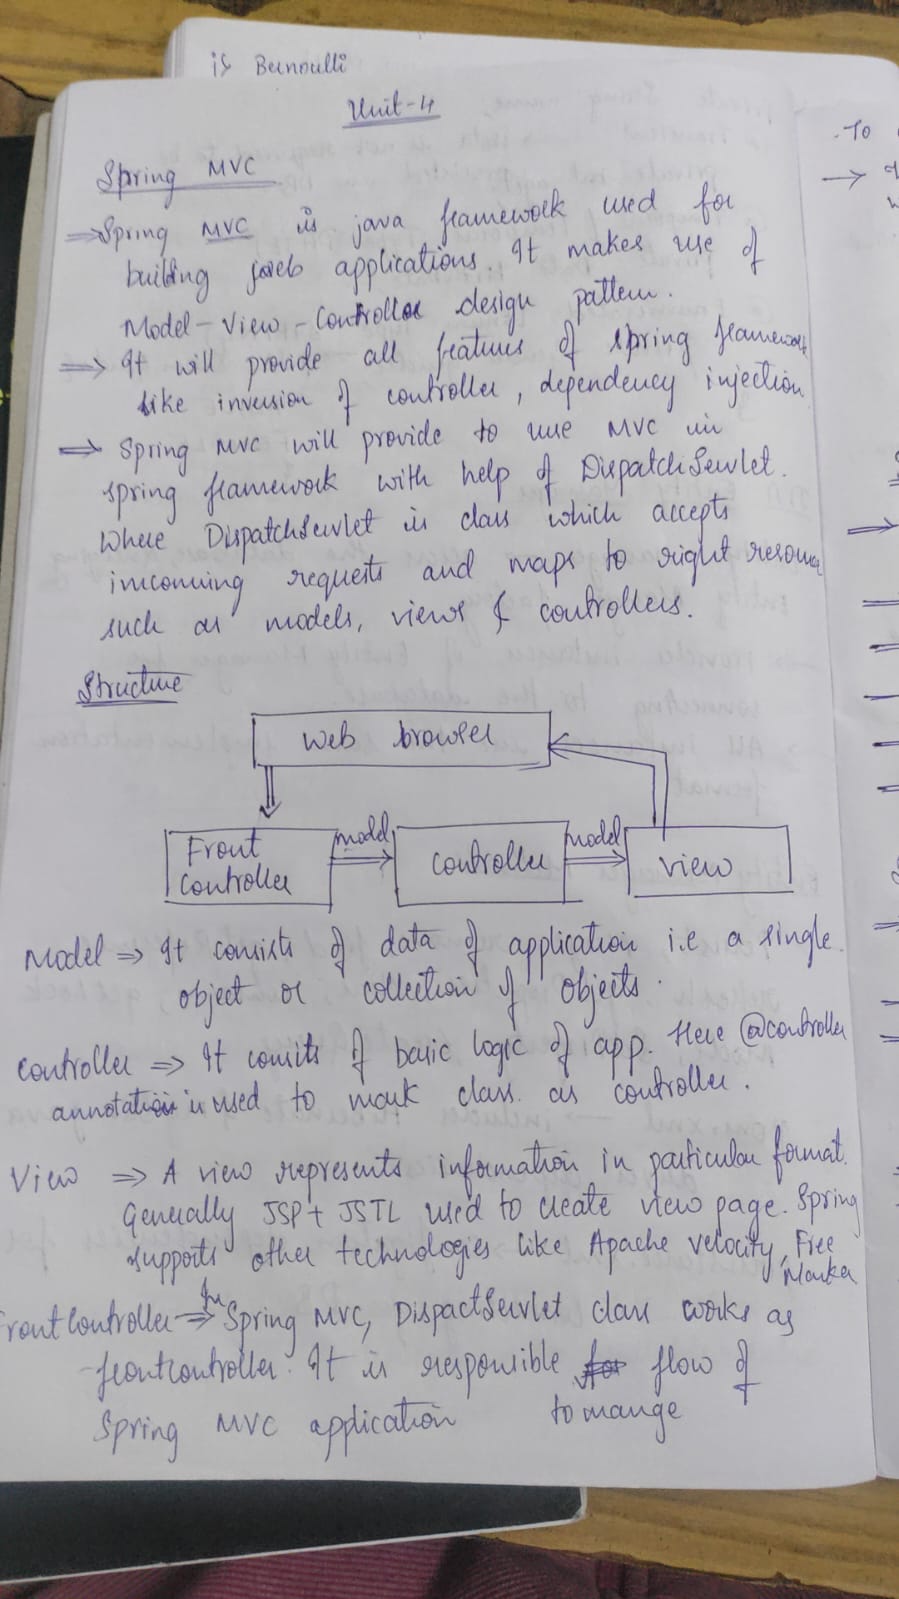 is Bernoulli
Unit-4
Spring MVC
⇒ Spring MVC is java framework used for
building web applications. It makes use of
Model-View-Controller design pattern.
⇒ It will provide all features of spring framework
like inversion of controller, dependency injection
⇒ Spring MVC will provide to use MVC in
spring framework with help of DispatchServlet.
Where DispatchServlet is class which accepts
incoming requests and maps to right resource
such as models, views & controllers.
Structure
Web browser
Front model Controller model View
Controller
Model ⇒ It consists of data of application i.e a single
object or collection of objects.
Controller ⇒ It consits of basic logic of app. Here @controller
annotation is used to mark class as controller.
View ⇒ A view represents information in particular format.
Generally JSP + JSTL used to create view page. Spring
supports other technologies like Apache velocity, Free
Marker
Front Controller ⇒ In Spring MVC, DispactServlet class works as
frontcontroller. It is responsible flow of
Spring MVC application to mange
To